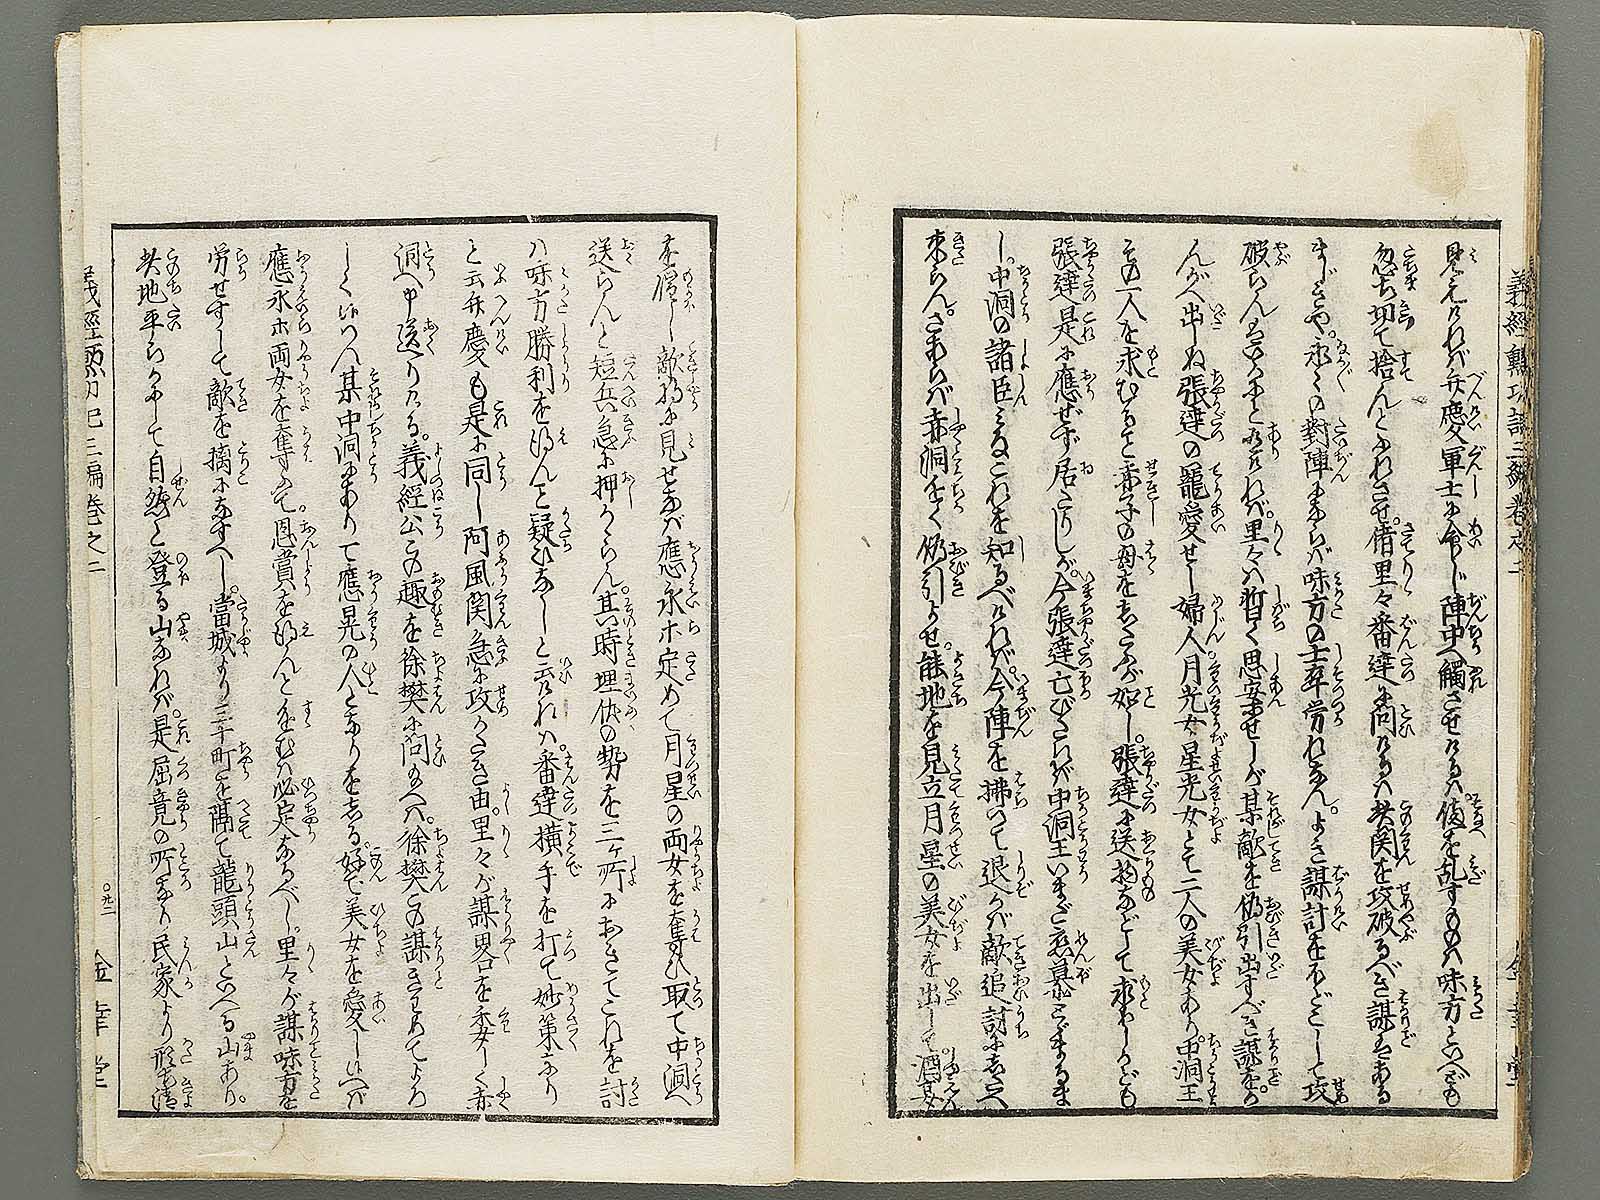 見えければ弁慶軍士に命じ陣中へ觸させけるは備を乱すものは味方といへども
忽ち切て捨んとふれさせ偖里々番達に問けるは此関を攻破るべき謀はある
まじきや永々の對陣にあらば味方の士卒労れなんよき謀計をほどこして攻
破らんはいかにと有ければ里々は暫く思案せしが某敵を偽引出すべき謀を
かんがへ出しぬ張達の寵愛せし婦人月光女星光女とて二人の美女あり中洞王
この二人を求むること赤子の母をしたふが如し張達に送物などして求めしかども
張達是に應ぜず居たりしが今張達亡びたれば中洞王いまだ恋慕とゞまるま
じ中洞の諸臣みなこれを知るべければ今陣を拂つて退かば敵追討にしたへ
来らんさあらば赤洞をく偽引よせ能地を見立月星の美女を出して酒宴
を催し敵将に見せなば應永ホ定めて月星の両女を奪ひ取て中洞へ
送らんと短兵急に押かゝらん其時埋伏の勢を三ヶ所におきてこれを討
は味方勝利を得んと疑ひなしと云ければ番達横手を打て妙策なり
と云弁慶も是に同し阿風関急に攻がたき由里々が謀畧を委しく赤
洞へ申送りける義經公この趣を徐樊に問玉へば徐樊この謀きはめてよろ
しくいはん某中洞にありて應晃の人となりをしる好で美女を愛しいへば
應永ホ両女を奪ふて恩賞を得んとせむは必定なるべし里々が謀味方を
労せずして敵を擒になすべし當城より三十町を隔て龍頭山といへる山あり
此地平らかにして自然と登る山なれば是屈竟の所なり民家より形ち清
義經勲功記三編巻之二
金幸堂
義經勲功記三編巻之二
〇九二
金幸堂